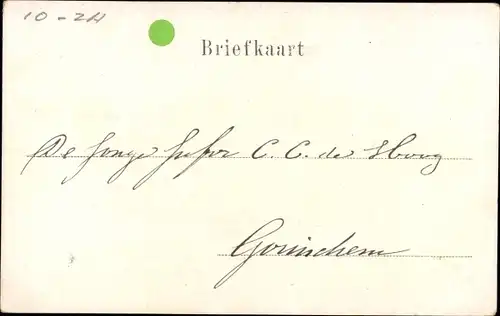 10-24
Briefkaart
De Jonge Jufvr C. C. de Hoog
Gorinchem